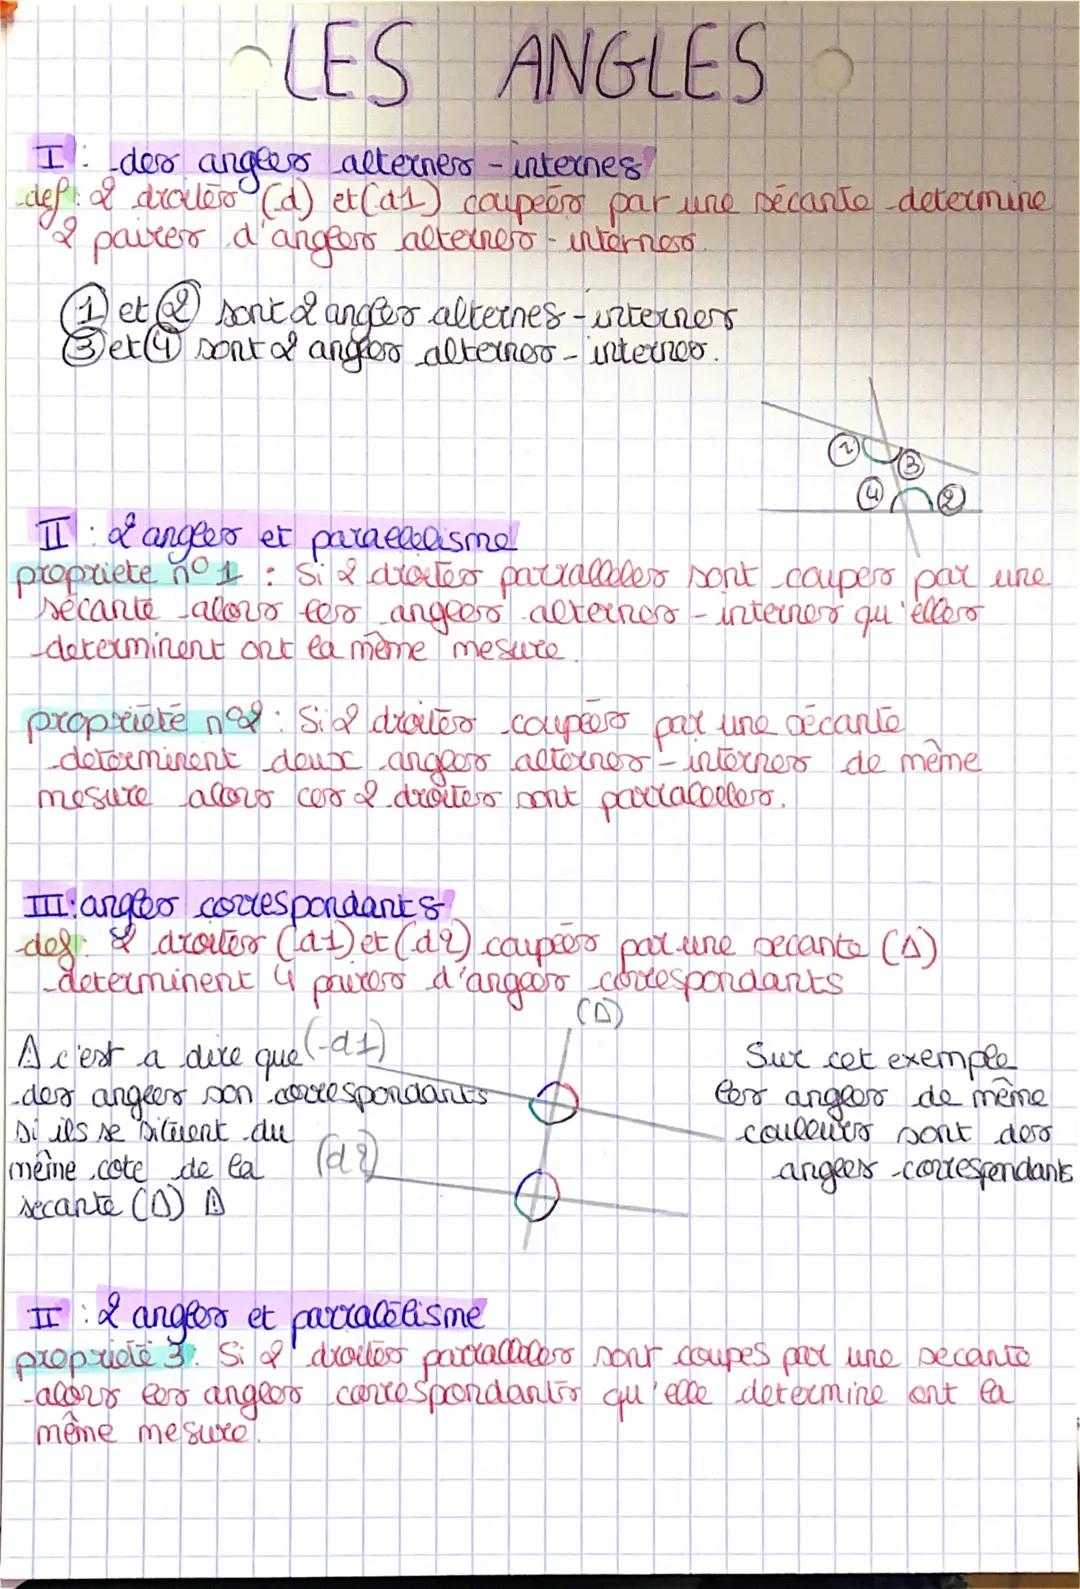 LES ANGLES
I : des angles alternes-internes
def : 2 droites (d) et (d1) coupées par une sécante determine
2 paires d'angles alternes-internes.
1 et 2 sont 2 angles alternes-internes
3 et 4 sont 2 angles alternes-internes.
1
3
4
2
II : 2 angles et parallelisme
propriete n°1 : Si 2 droites parralleles sont coupes par une
sécante alors les angles alternes-internes qu'elles
determinent ont la même mesure.
propriété n°2 : Si 2 droites coupées par une sécante
determinent deux angles alternes-internes de même
mesure alors ces 2 droites sont parralelles.
III : angles correspondants
def : 2 droites (d1) et (d2) coupées par une secante (Δ)
determinent 4 paires d'angles correspondants
(Δ)
⚠ c'est a dire que
des angles son correspondants
si ils se situent du
même cote de la
secante (Δ) ⚠
(d1)
(d2)
Sur cet exemple
les angles de même
couleurs sont des
angles correspondants
II : 2 angles et parralélisme
propriété 3 : Si 2 droites parralleles sont coupes par une secante
alors les angles correspondants qu'elle determine ont la
même mesure.